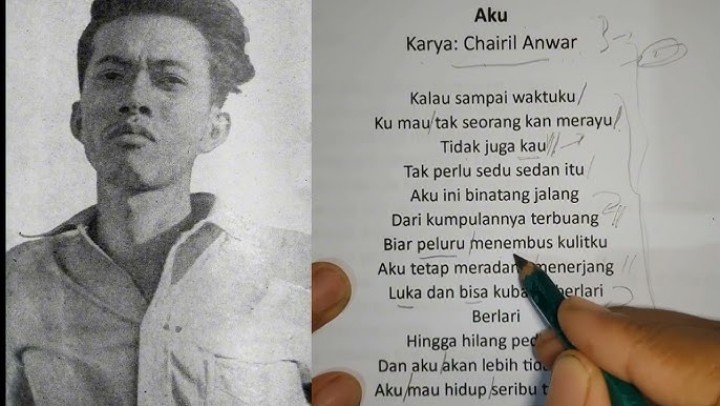 Aku
Karya: Chairil Anwar
Kalau sampai waktuku/
Ku mau/tak seorang kan merayu/
Tidak juga kau//
Tak perlu sedu sedan itu/
Aku ini binatang jalang
Dari kumpulannya terbuang //
Biar peluru/menembus kulitku
Aku tetap meradang/menerjang //
Luka dan bisa berlari
Berlari
Hingga hilang
Dan aku/akan lebih
Aku/mau hidup/seribu